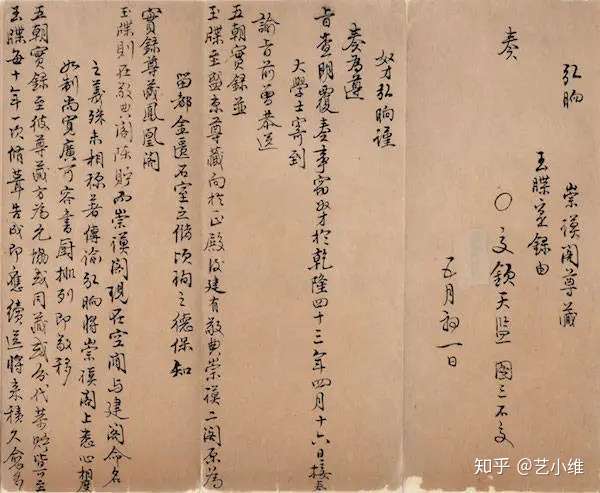 弘晌 崇謨閣尊藏
玉牒實錄由
奏 〇 交 天 圖三不交
五月初一日
奴才弘晌謹
奏為遵
旨查明覆奏事竊奴才於乾隆四十三年四月十六日接奉
大學士寄到
諭旨前曾恭送
五朝實錄並
玉牒至盛京尊藏向於正殿後建有敬典崇謨二閣原為
留都金匱石室之備頃詢之德保知
實錄尊藏鳳凰閣
玉牒則在敬典閣除貯而崇謨閣現在空閒與建閣命名
之義殊未相稱著傳諭弘晌將崇謨閣上悉心相度
如制尚寬廣可容書厨排列即敬移
五朝實錄至彼尊藏方為允協或同藏或分代恭貯皆可至
玉牒每十年一次脩葺告成即應續送將來積久愈多
知乎 @艺小维